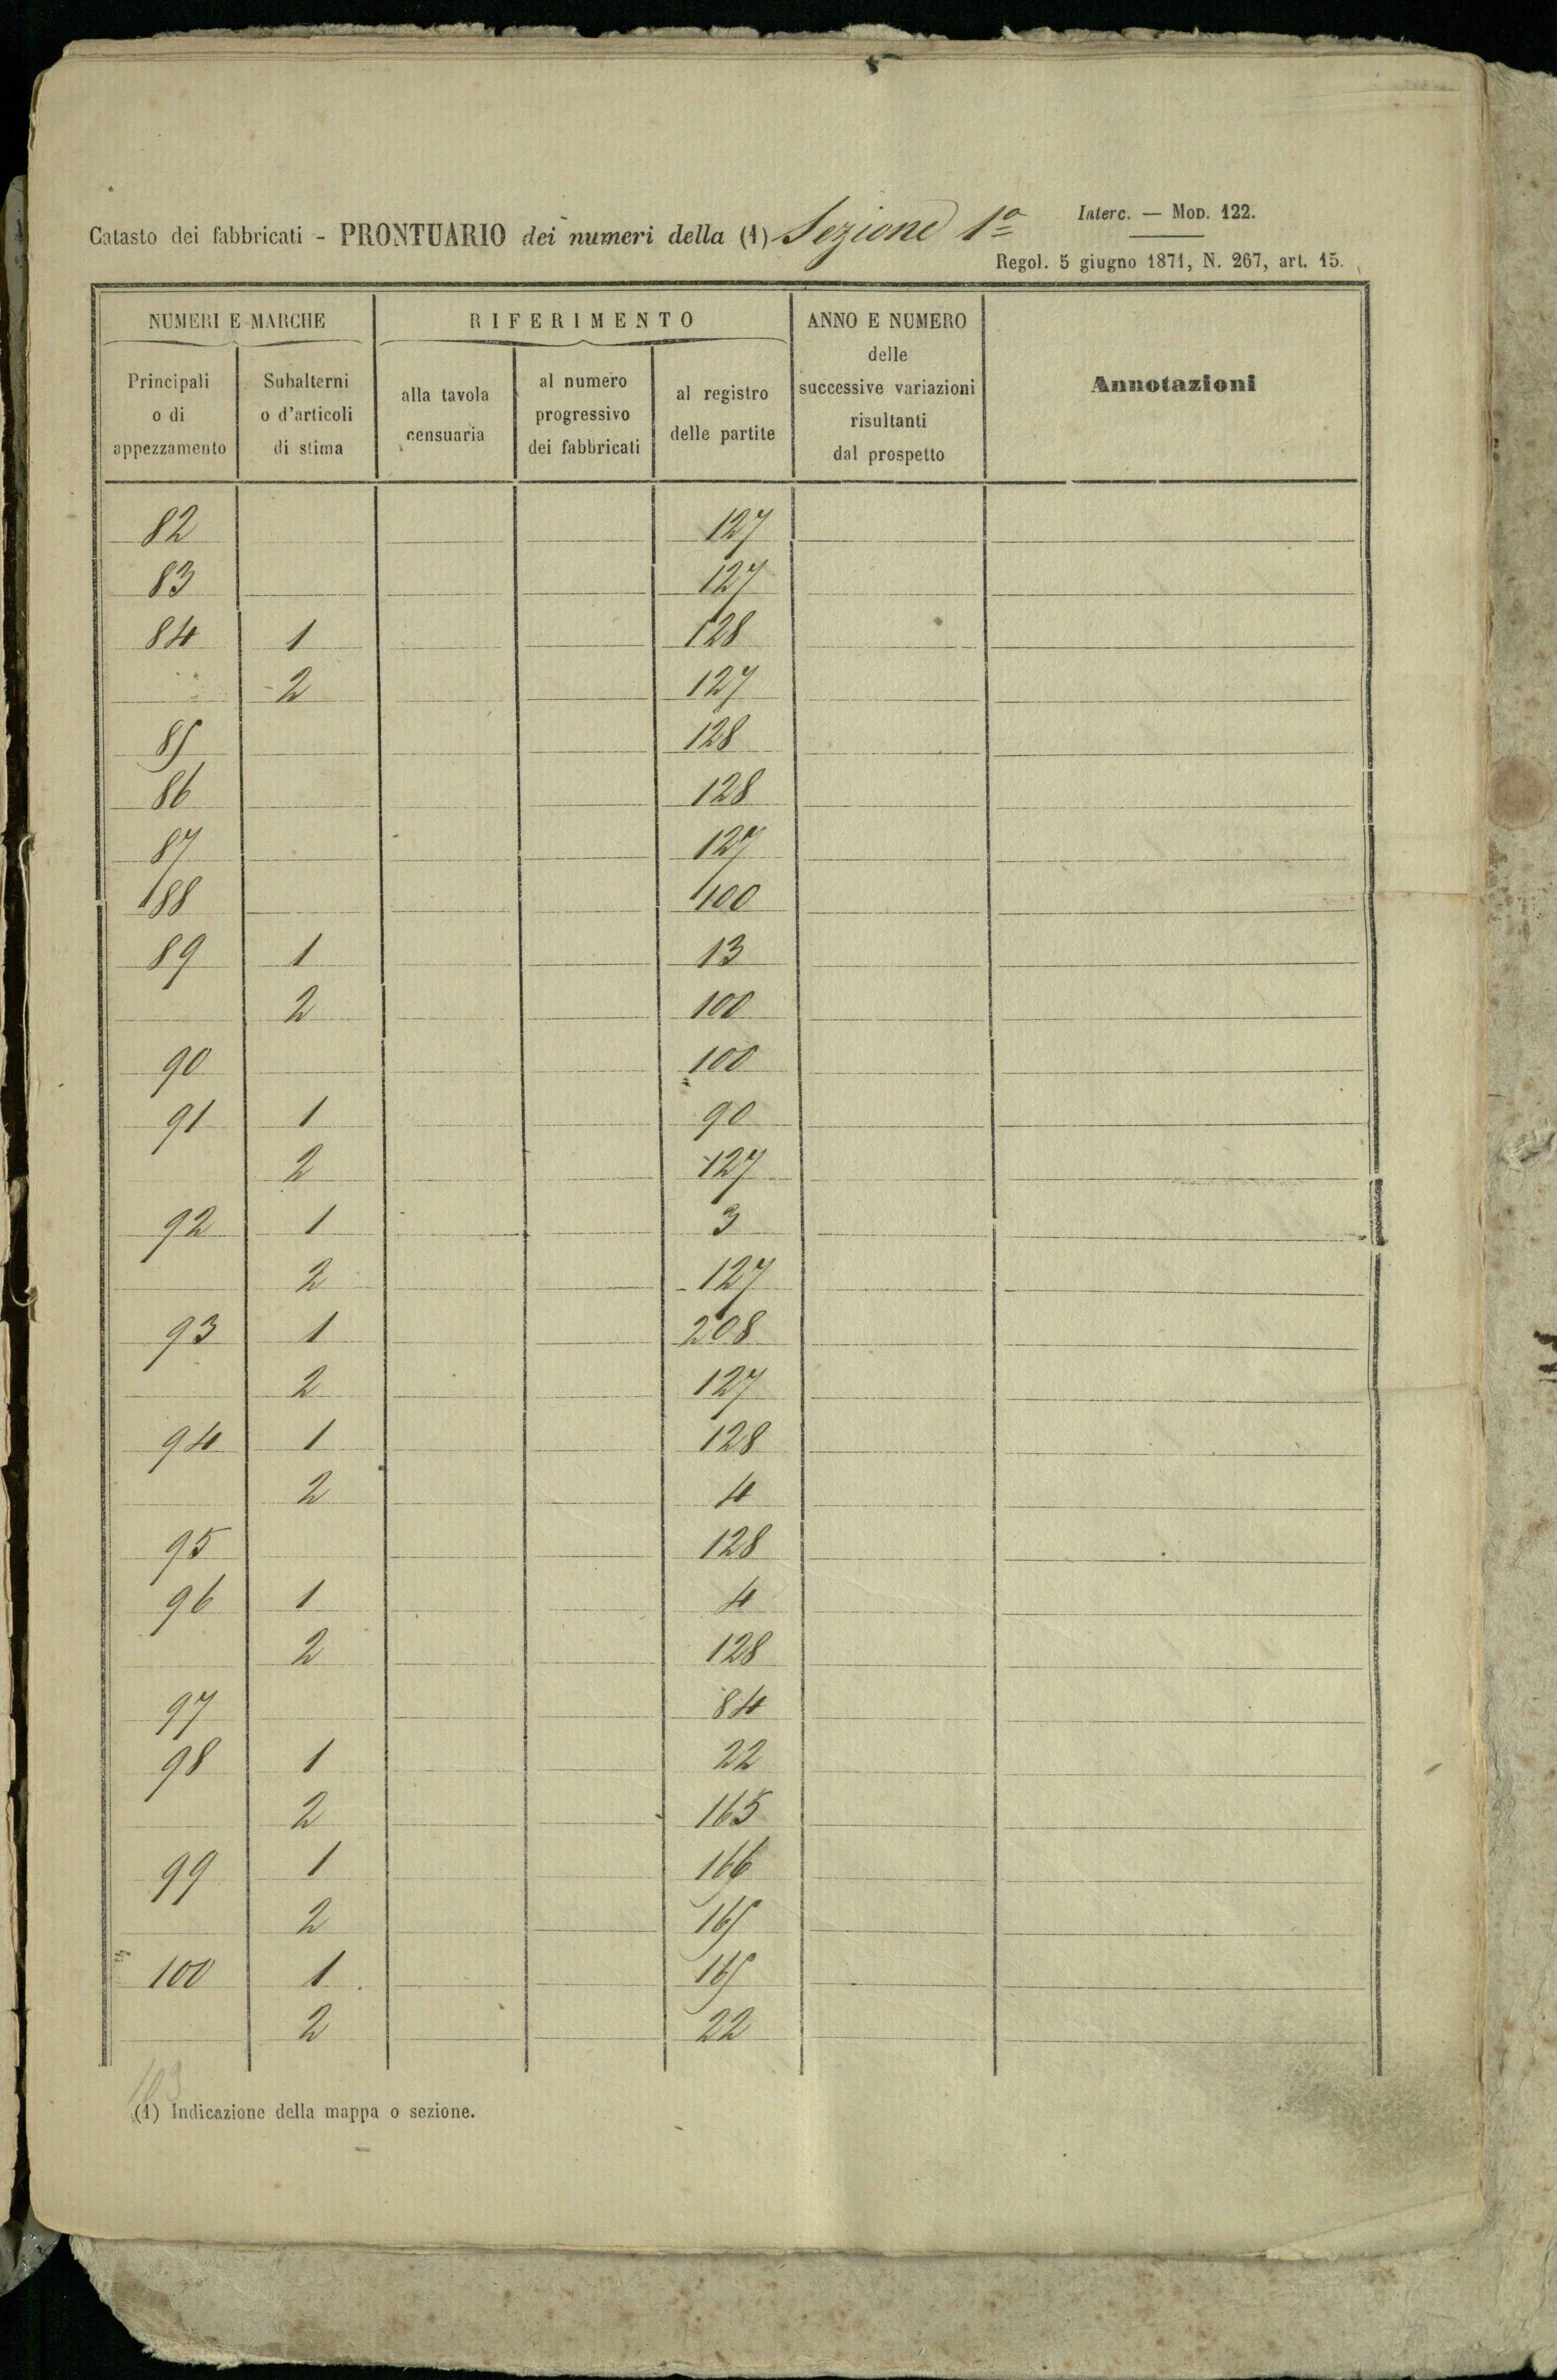 Interc. — Mod. 122.
Catasto dei fabbricati - PRONTUARIO dei numeri della (1) Sezione 1ª
Regol. 5 giugno 1871, N. 267, art. 15.
NUMERI E MARCHE RIFERIMENTO ANNO E NUMERO delle successive variazioni risultanti dal prospetto Annotazioni
Principali o di appezzamento Subalterni o d'articoli di stima alla tavola censuaria al numero progressivo dei fabbricati al registro delle partite
82 127
83 127
84 1 128
2 127
85 128
86 128
87 127
88 100
89 1 13
2 100
90 100
91 1 90
2 127
92 1 3
2 127
93 1 208
2 127
94 1 128
2 4
95 128
96 1 4
2 128
97 84
98 1 22
2 165
99 1 166
2 165
100 1 165
2 22
103
(1) Indicazione della mappa o sezione.